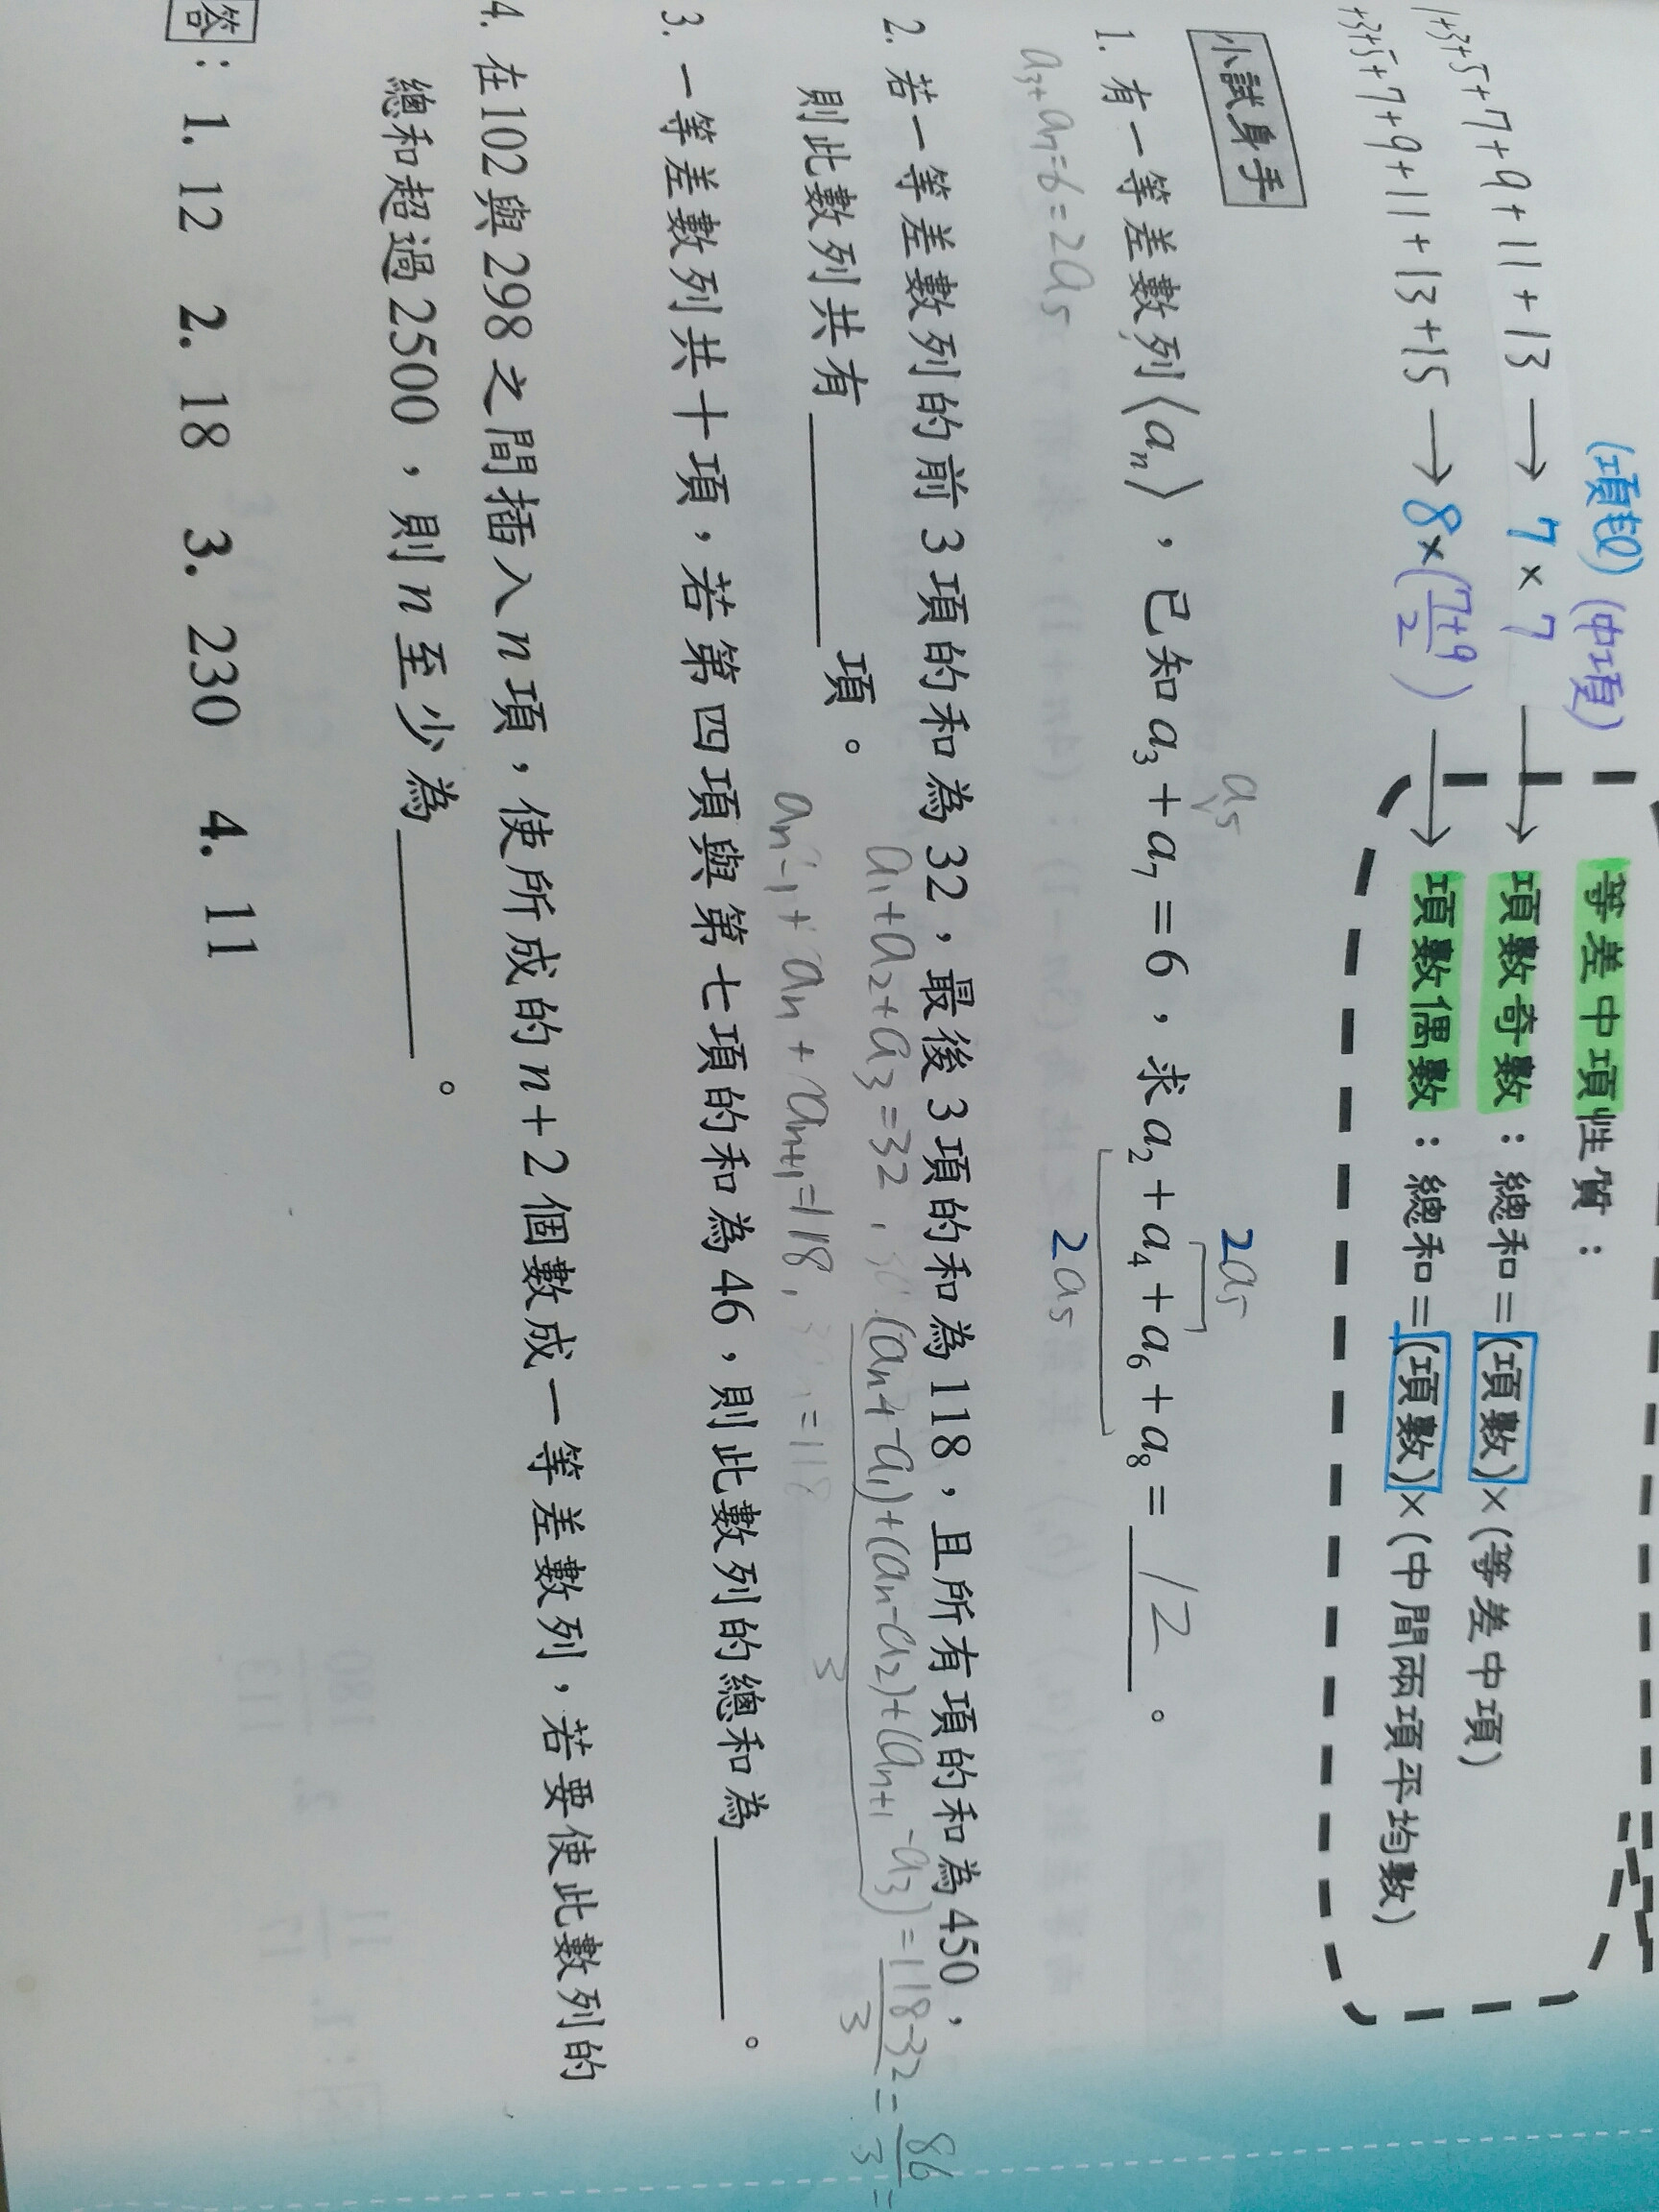 等差中項性質：
(項數) (中項)
1+3+5+7+9+11+13 → 7×7 → 項數奇數：總和=(項數)×(等差中項)
+3+5+7+9+11+13+15 → 8×(7+9/2) → 項數偶數：總和=(項數)×(中間兩項平均數)
小試身手
a5 2a5
1. 有一等差數列⟨aₙ⟩，已知a₃+a₇=6，求a₂+a₄+a₆+a₈= 12 。
a3+a7=6=2a5 2a5
2. 若一等差數列的前3項的和為32，最後3項的和為118，且所有項的和為450，
a1+a2+a3=32, (an-1-a1)+(an-a2)+(an+1-a3)/3=118-32/3=86/3=
則此數列共有______項。
an-1+an+an+1=118,
3. 一等差數列共十項，若第四項與第七項的和為46，則此數列的總和為______。
4. 在102與298之間插入n項，使所成的n+2個數成一等差數列，若要使此數列的
總和超過2500，則n至少為______。
答：1. 12 2. 18 3. 230 4. 11